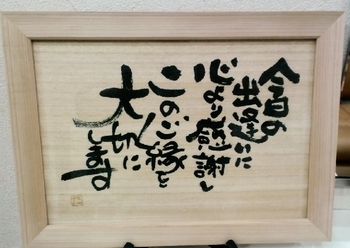 今日の
出逢いに
心より感謝し
このご縁を
大切に
します